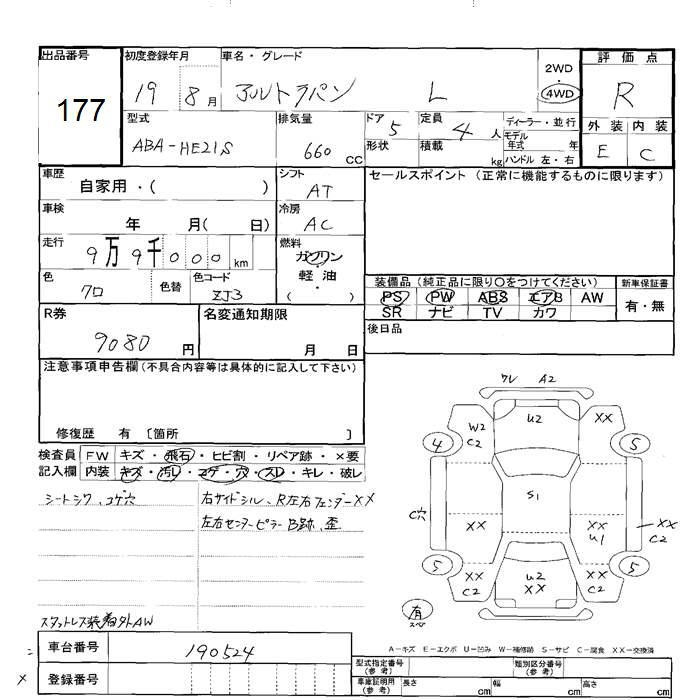 出品番号
177
初度登録年月
19 8月
車名・グレード
アルトラパン L
2WD
・
4WD
評価点
R
外装 内装
E C
型式
ABA-HE21S
排気量
660 CC
ドア 5
形状
定員 4 人
積載 kg
ディーラー・並行
モデル年式 年
ハンドル 左・右
車歴
自家用・( )
シフト
AT
セールスポイント (正常に機能するものに限ります)
車検
年 月( 日)
冷房
AC
走行
9万9千000km
燃料
ガソリン
・
軽油
・
( )
色
クロ
色替
色コード
ZJ3
装備品 (純正品に限り○をつけてください)
PS PW ABS エアB AW
SR ナビ TV カワ
新車保証書
有・無
R券
9080 円
名変通知期限
月 日
後日品
注意事項申告欄(不具合内容等は具体的に記入して下さい)
修復歴 有 〔箇所 〕
検査員記入欄
FW キズ・飛石・ヒビ割・リペア跡・×要
内装 キズ・汚レ・コゲ・穴・スレ・キレ・破レ
シートシワ、コゲ穴
右サイドシル、R左右フェンダーXX
左右センターピラーB跡、歪
スタットレス装着外AW
ワレ A2
U2
W2
C2
XX
4
5
S1
C穴
XX
XX
U1
XX
C2
5
5
XX
C2
U2
XX
XX
C2
有
スペ
A－キズ E－エクボ U－凹み W－補修跡 S－サビ C－腐食 XX－交換済
車台番号
190524
登録番号
型式指定番号
(参考)
類別区分番号
(参考)
車庫証明用
(参考)
長さ cm 幅 cm 高さ cm